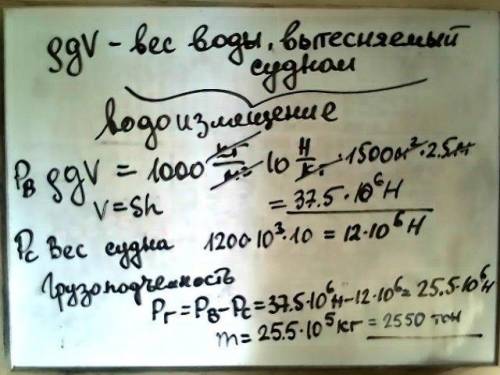 ρgV - вес воды, вытесняемый
судном
водоизмещение
Pв ρgV = 1000 кг/м³ · 10 Н/кг · 1500м² · 2.5м
V = Sh = 37.5 · 10⁶ Н
Pс Вес судна 1200·10³·10 = 12·10⁶ Н
Грузоподъемность
Pг = Pв - Pс = 37.5·10⁶Н - 12·10⁶ = 25.5·10⁶ Н
m = 25.5·10⁵ кг = 2550 тон